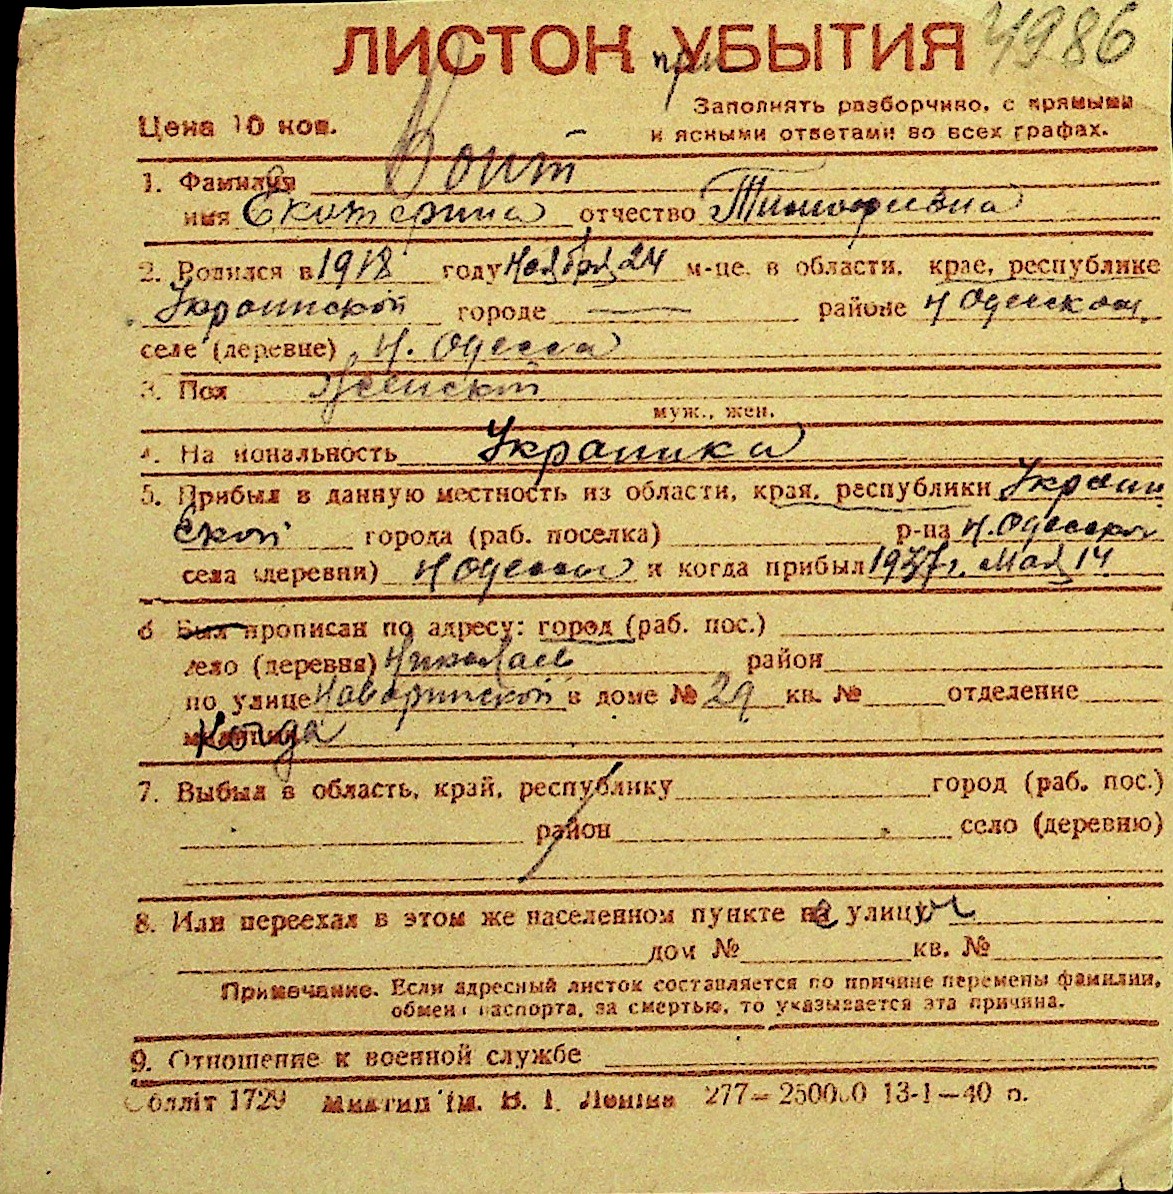 ЛИСТОК при УБЫТИЯ 4986
Заполнять разборчиво, с прямыми
Цена 10 коп. и ясными ответами во всех графах.
1. Фамилия Воит
имя Екатерина отчество Тимофеевна
2. Родился в 1918 году Ноября 24 м-це. в области, крае, республике
Украинской городе — районе Н Одесском
селе (деревне) Н. Одесса
3. Пол Женской
муж., жен.
4. На иональность Украинка
5. Прибыл в данную местность из области, края, республики Украин
ской города (раб. поселка) р-на Н. Одесской
села (деревни) Н Одессы и когда прибыл 1937 г. Мая 14
6 Был прописан по адресу: город (раб. пос.)
село (деревня) Николаев район
по улице Наваринской в доме № 29 кв. № отделение
милиции
7. Выбыл в область, край, республику город (раб. пос.)
район село (деревню)
8. Или переехал в этом же населенном пункте на улицу
дом № кв. №
Примечание. Если адресный листок составляется по причине перемены фамилии,
обмена паспорта, за смертью, то указывается эта причина.
9. Отношение к военной службе
Облліт 1729 Миктип ім. В. І. Леніна 277—250000 13-1—40 п.